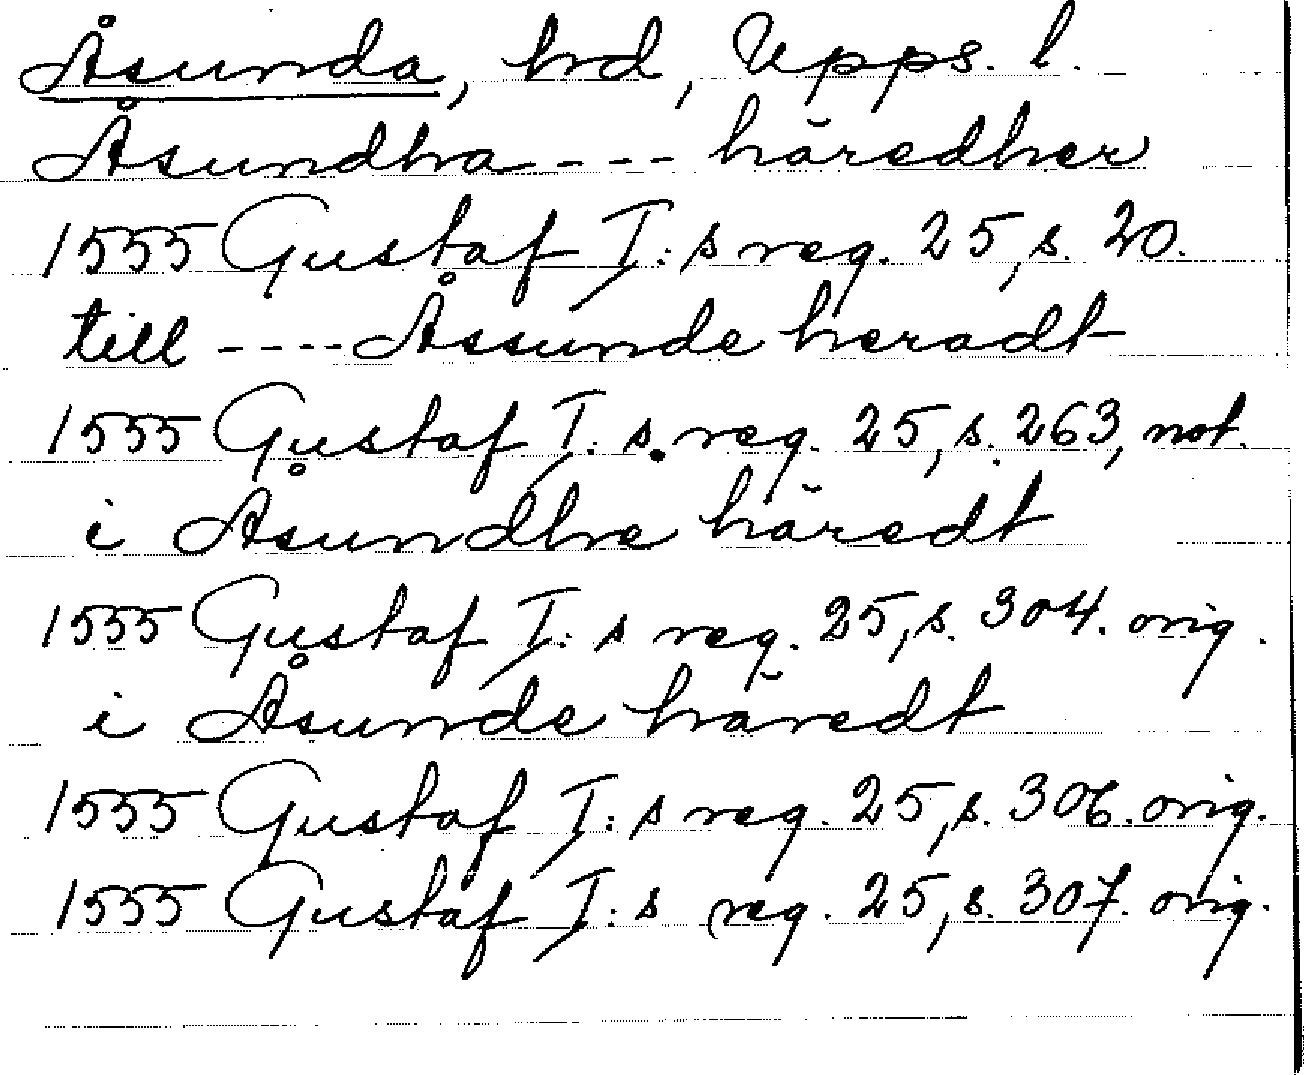 Åsunda, hrd, Upps. l.
Åsundha - - - häredher
1555 Gustaf I:s reg. 25, s. 20.
till - - - - Åssunde heradt
1555 Gustaf I:s reg. 25, s. 263, not.
i Åsundhe häredt
1555 Gustaf I:s reg. 25, s. 304. orig.
i Åsunde häredt
1555 Gustaf I:s reg. 25, s. 306. orig.
1555 Gustaf I:s reg. 25, s. 307. orig.